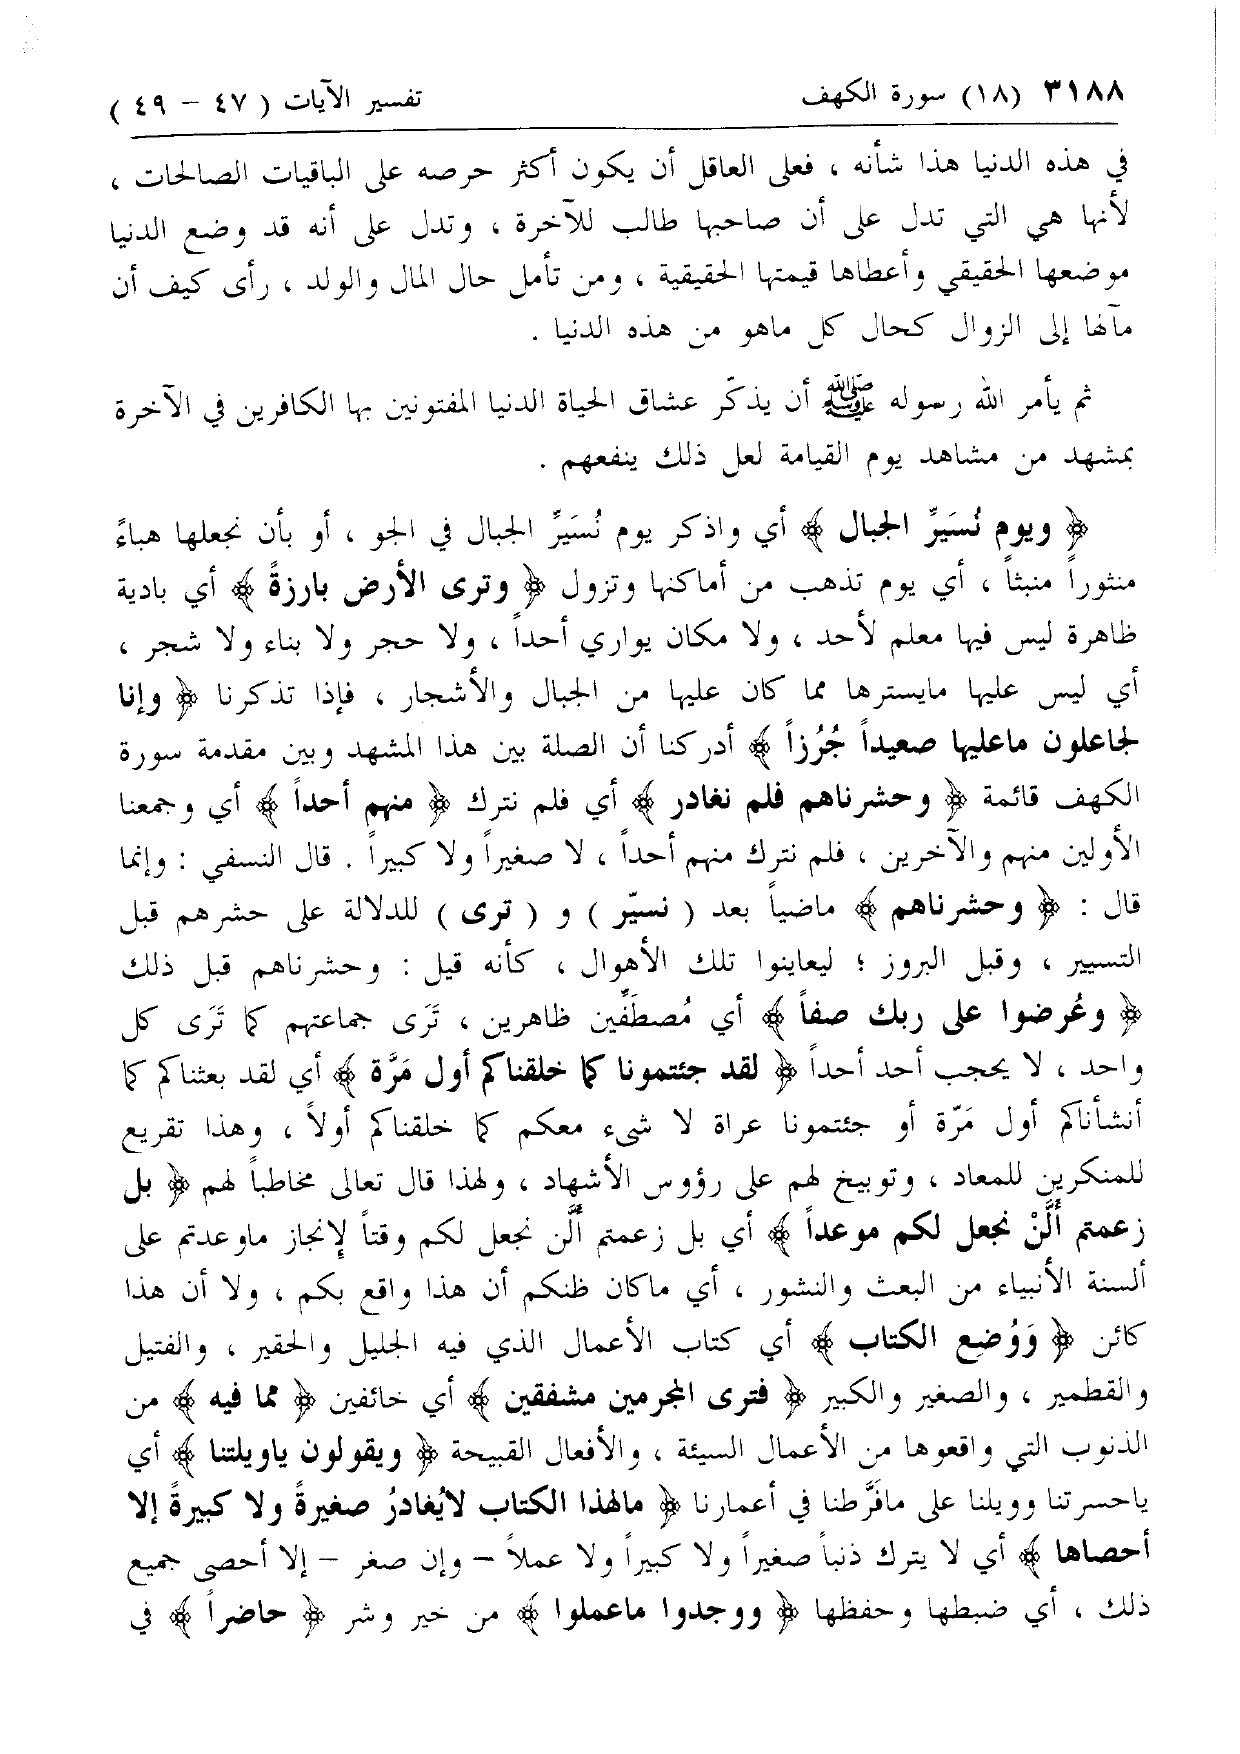 ٣١٨٨ (١٨) سورة الكهف تفسير الآيات ( ٤٧ – ٤٩ )
في هذه الدنيا هذا شأنه ، فعلى العاقل أن يكون أكثر حرصه على الباقيات الصالحات ،
لأنها هي التي تدل على أن صاحبها طالب للآخرة ، وتدل على أنه قد وضع الدنيا
موضعها الحقيقي وأعطاها قيمتها الحقيقية ، ومن تأمل حال المال والولد ، رأى كيف أن
مآلها إلى الزوال كحال كل ماهو من هذه الدنيا .
ثم يأمر الله رسوله ﷺ أن يذكّر عشاق الحياة الدنيا المفتونين بها الكافرين في الآخرة
بمشهد من مشاهد يوم القيامة لعل ذلك ينفعهم .
﴿ ويوم نُسَيِّر الجبال ﴾ أي واذكر يوم نُسَيِّر الجبال في الجو ، أو بأن نجعلها هباءً
منثوراً منبثاً ، أي يوم تذهب من أماكنها وتزول ﴿ وترى الأرض بارزةً ﴾ أي بادية
ظاهرة ليس فيها معلم لأحد ، ولا مكان يواري أحداً ، ولا حجر ولا بناء ولا شجر ،
أي ليس عليها مايسترها مما كان عليها من الجبال والأشجار ، فإذا تذكرنا ﴿ وإنا
لجاعلون ماعليها صعيداً جُرُزاً ﴾ أدركنا أن الصلة بين هذا المشهد وبين مقدمة سورة
الكهف قائمة ﴿ وحشرناهم فلم نغادر ﴾ أي فلم نترك ﴿ منهم أحداً ﴾ أي وجمعنا
الأولين منهم والآخرين ، فلم نترك منهم أحداً ، لا صغيراً ولا كبيراً . قال النسفي : وإنما
قال : ﴿ وحشرناهم ﴾ ماضياً بعد ( نسيّر ) و ( ترى ) للدلالة على حشرهم قبل
التسيير ، وقبل البروز ؛ ليعاينوا تلك الأهوال ، كأنه قيل : وحشرناهم قبل ذلك
﴿ وعُرضوا على ربك صفاً ﴾ أي مُصطَفِّين ظاهرين ، تَرَى جماعتهم كما تَرَى كل
واحد ، لا يحجب أحد أحداً ﴿ لقد جئتمونا كما خلقناكم أول مَرَّة ﴾ أي لقد بعثناكم كما
أنشأناكم أول مَرّة أو جئتمونا عراة لا شىء معكم كما خلقناكم أولاً ، وهذا تقريع
للمنكرين للمعاد ، وتوبيخ لهم على رؤوس الأشهاد ، ولهذا قال تعالى مخاطباً لهم ﴿ بل
زعمتم ألَّنْ نجعل لكم موعداً ﴾ أي بل زعمتم ألَّن نجعل لكم وقتاً لإنجاز ماوعدتم على
ألسنة الأنبياء من البعث والنشور ، أي ماكان ظنكم أن هذا واقع بكم ، ولا أن هذا
كائن ﴿ وَوُضع الكتاب ﴾ أي كتاب الأعمال الذي فيه الجليل والحقير ، والفتيل
والقطمير ، والصغير والكبير ﴿ فترى المجرمين مشفقين ﴾ أي خائفين ﴿ مما فيه ﴾ من
الذنوب التي واقعوها من الأعمال السيئة ، والأفعال القبيحة ﴿ ويقولون ياويلتنا ﴾ أي
ياحسرتنا وويلنا على مافَرَّطنا في أعمارنا ﴿ مالهذا الكتاب لايُغادرُ صغيرةً ولا كبيرةً إلا
أحصاها ﴾ أي لا يترك ذنباً صغيراً ولا كبيراً ولا عملاً – وإن صغر – إلا أحصى جميع
ذلك ، أي ضبطها وحفظها ﴿ ووجدوا ماعملوا ﴾ من خير وشر ﴿ حاضراً ﴾ في